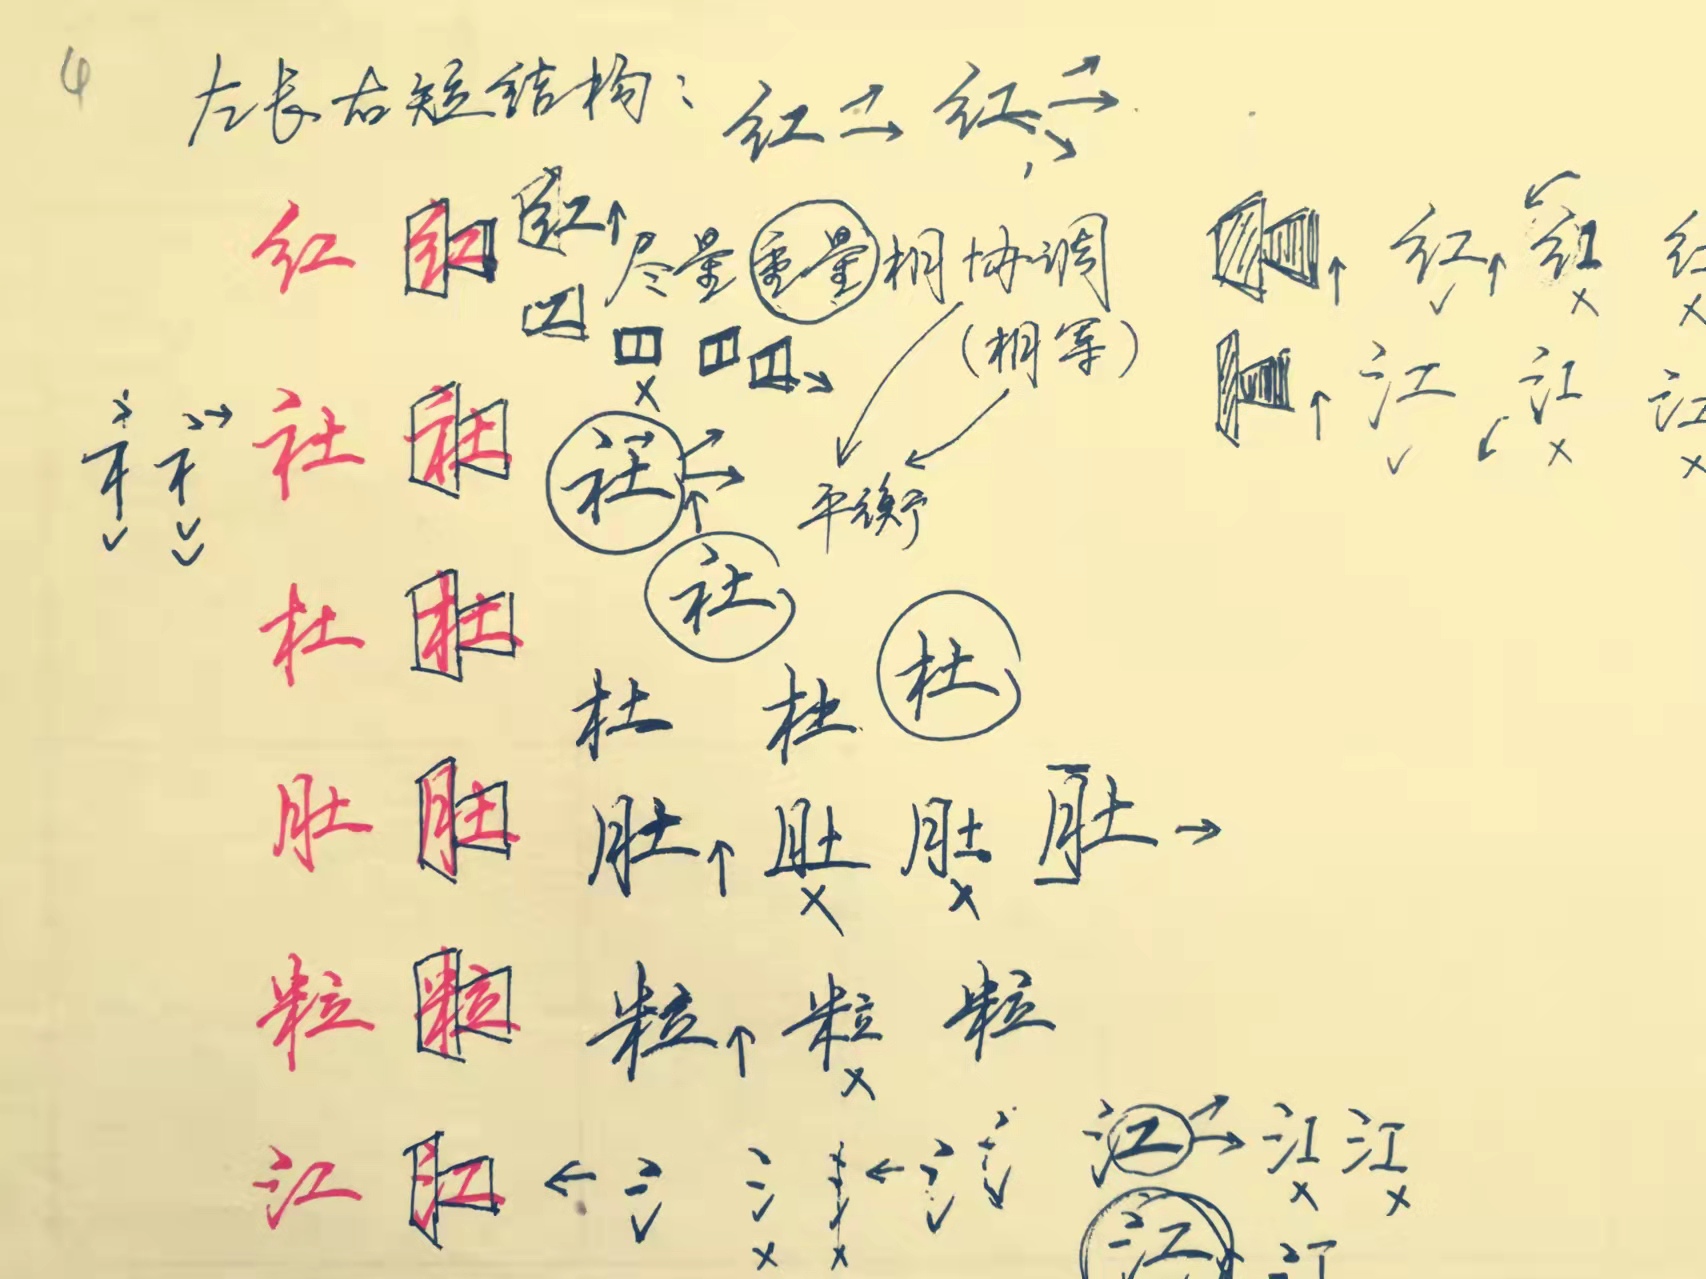 4 左长右短结构: 红 红
红 红 红 尽量重量相协调 红 红 红
工 (相等) 江 江 江
社 社 社 平衡
社
杜 杜 杜 杜 杜
肚 肚 肚 肚 肚 肚
粒 粒 粒 粒 粒
江 江 氵 氵 氵 氵 江 江 江
江 江